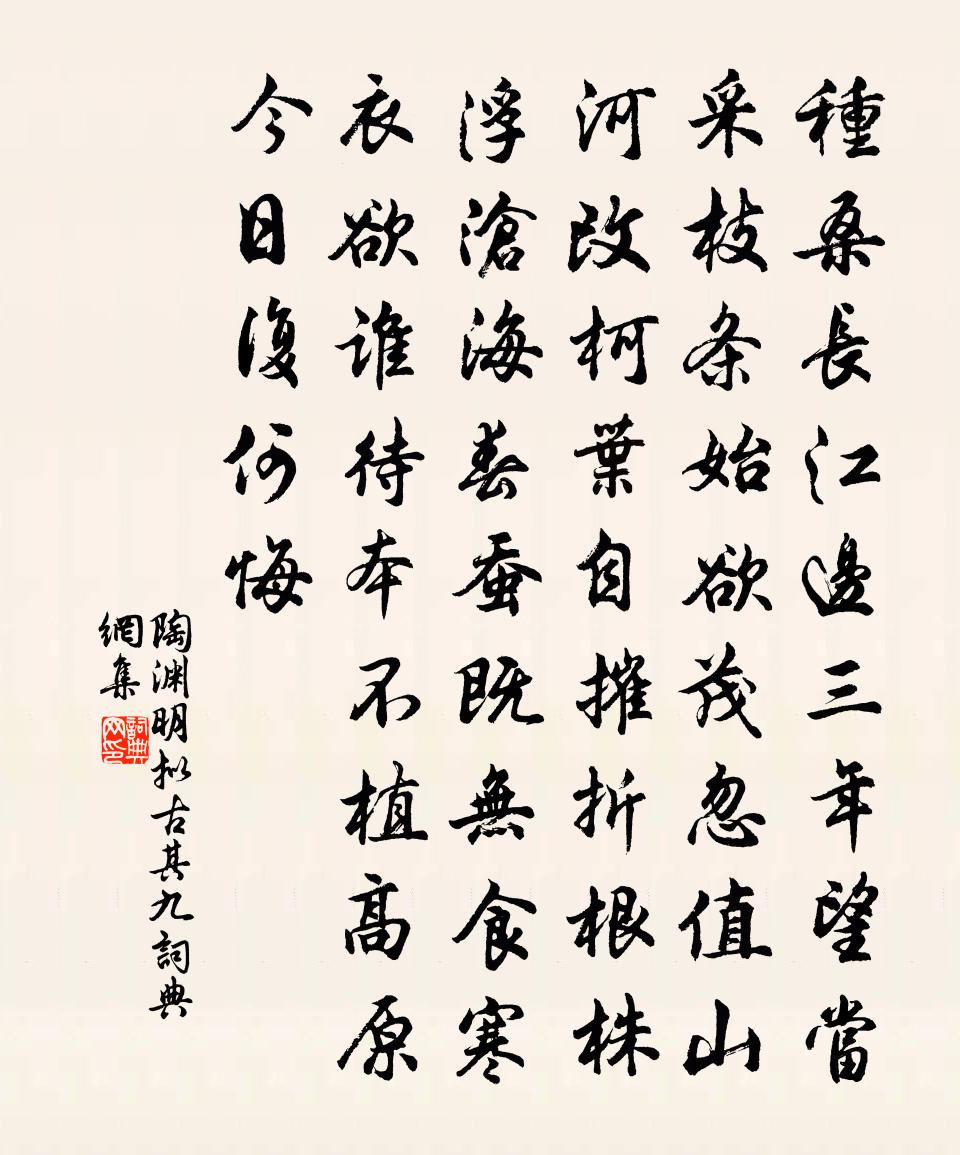 種桑長江邊三年望當
采枝条始欲茂忽值山
河改柯葉自摧折根株
浮滄海春蚕既無食寒
衣欲谁待本不植高原
今日復何悔
陶渊明拟古其九詞典
網集
詞典
网印